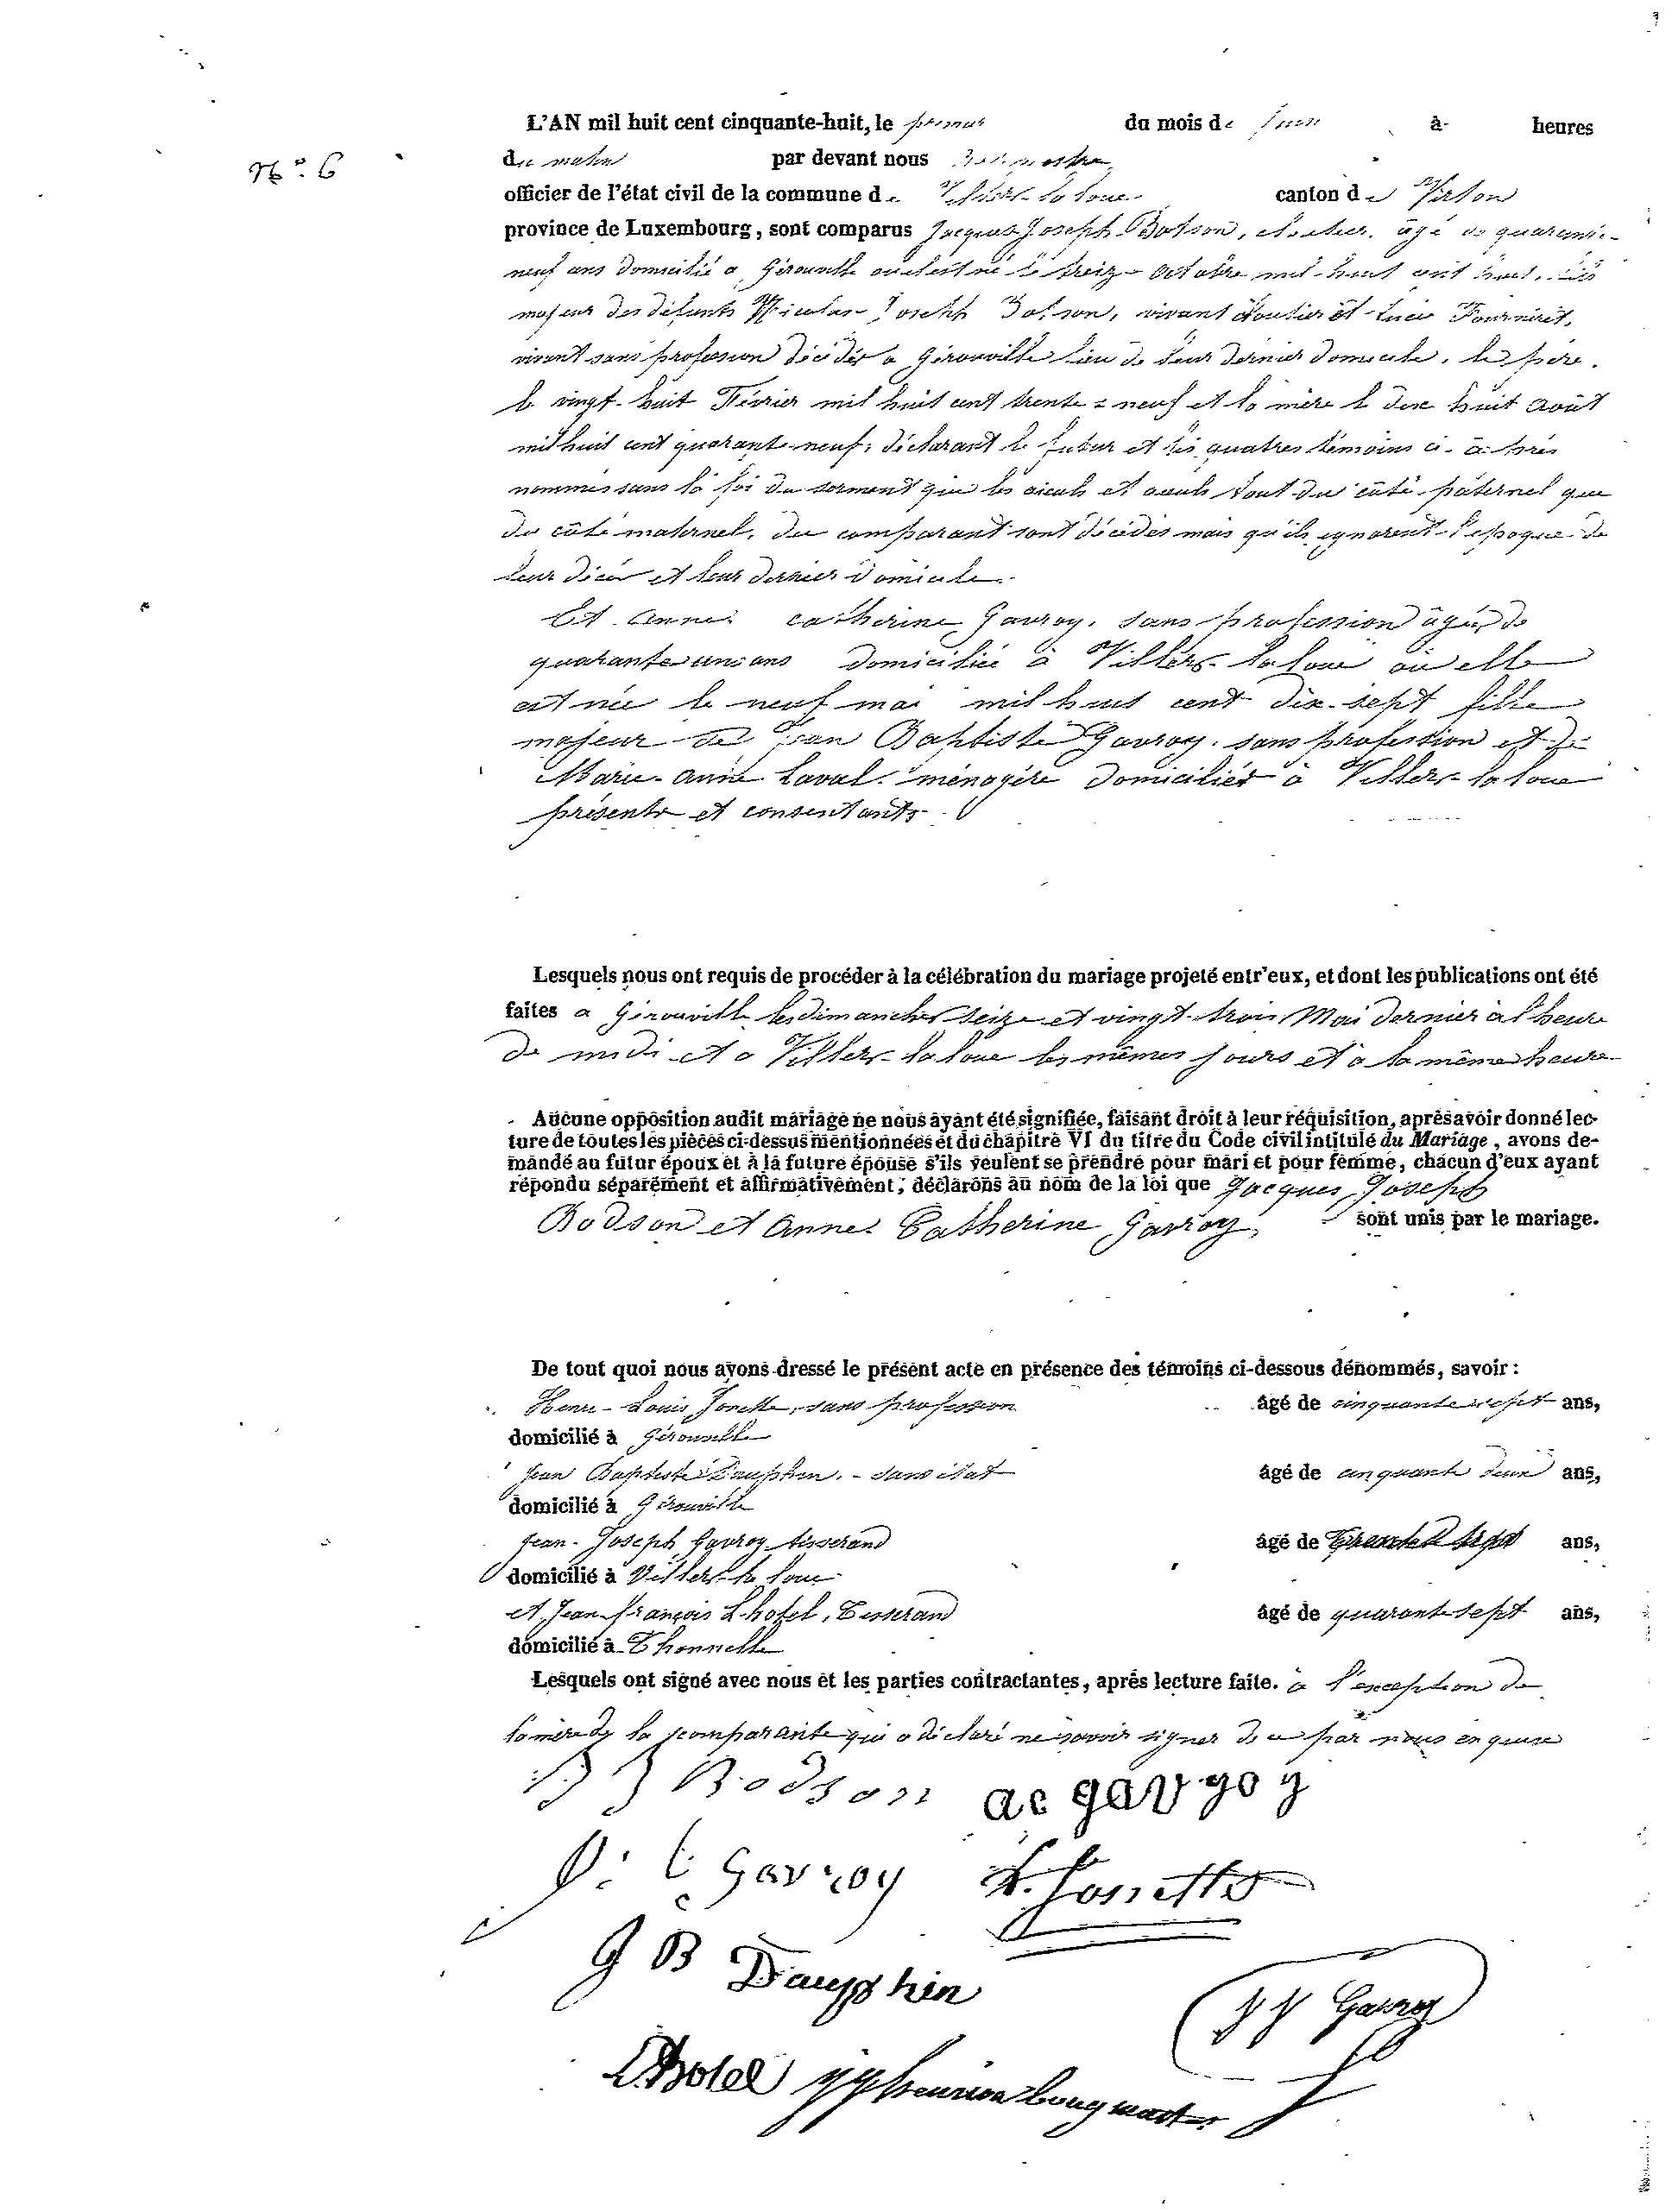 N° 6
L'AN mil huit cent cinquante-huit, le premier du mois de Juin à heures
du matin par devant nous Bourgmestre
officier de l'état civil de la commune de Villers-la-loue canton de Virton
province de Luxembourg, sont comparus Jacques Joseph Bodson, âgé de quarante-
neuf ans domicilié à Gérouville où il est né le treize Octobre mil huit cent huit, fils
majeur des défunts Nicolas Joseph Bodson, vivant et Fourniret,
vivant sans profession décédés à Gérouville lieu de leur dernier domicile, le père
le vingt-huit Février mil huit cent trente-neuf et la mère le dix huit Août
mil huit cent quarante-neuf, déclarant le futur et les quatres témoins ci-après
nommés sous la foi du serment que les aïeuls et aïeules tout du côté paternel que
du côté maternel, du comparant sont décédés mais qu'ils ignorent l'epoque de
leur décès et leur dernier domicile.
Et Anne catherine Gavroy, sans profession âgée de
quarante un ans domiciliée à Villers-la loue où elle
est née le neuf mai mil huit cent dix-sept fille
majeur de Jean Baptiste Gavroy, sans profession et de
Marie-anne Laval ménagère domiciliés à Villers-la loue
présents et consentants
Lesquels nous ont requis de procéder à la célébration du mariage projeté entr'eux, et dont les publications ont été
faites à Gérouville les dimanches seize et vingt-trois Mai dernier à l'heure
de midi et à Villers-la loue les mêmes jours et à la même heure
Aucune opposition audit mariage ne nous ayant été signifiée, faisant droit à leur réquisition, après avoir donné lec-
ture de toutes les pièces ci-dessus mentionnées et du chapitre VI du titre du Code civil intitulé du Mariage, avons de-
mandé au futur époux et à la future épouse s'ils veulent se prendre pour mari et pour femme, chacun d'eux ayant
répondu séparément et affirmativement, déclarons au nom de la loi que Jacques Joseph
Bodson et Anne Catherine Gavroy, sont unis par le mariage.
De tout quoi nous avons dressé le présent acte en présence des témoins ci-dessous dénommés, savoir :
Henri-Louis Jonette, sans profession âgé de cinquante sept ans,
domicilié à Gérouville
Jean Baptiste Dauphin, - sans état âgé de cinquante deux ans,
domicilié à Gérouville
Jean-Joseph Gavroy tisserand âgé de trente sept ans,
domicilié à Villers-la loue
et Jean-françois Lhotel, Tisserand âgé de quarante sept ans,
domicilié à Thonnelle
Lesquels ont signé avec nous et les parties contractantes, après lecture faite. à l'exception de
la mère de la comparante qui a déclaré ne savoir signer de ce par nous enquise
J J Bodson ac gavroy
J. B Gavroy H. Jonette
J B Dauphin
J J Gavroy
Lhotel bourgmestre